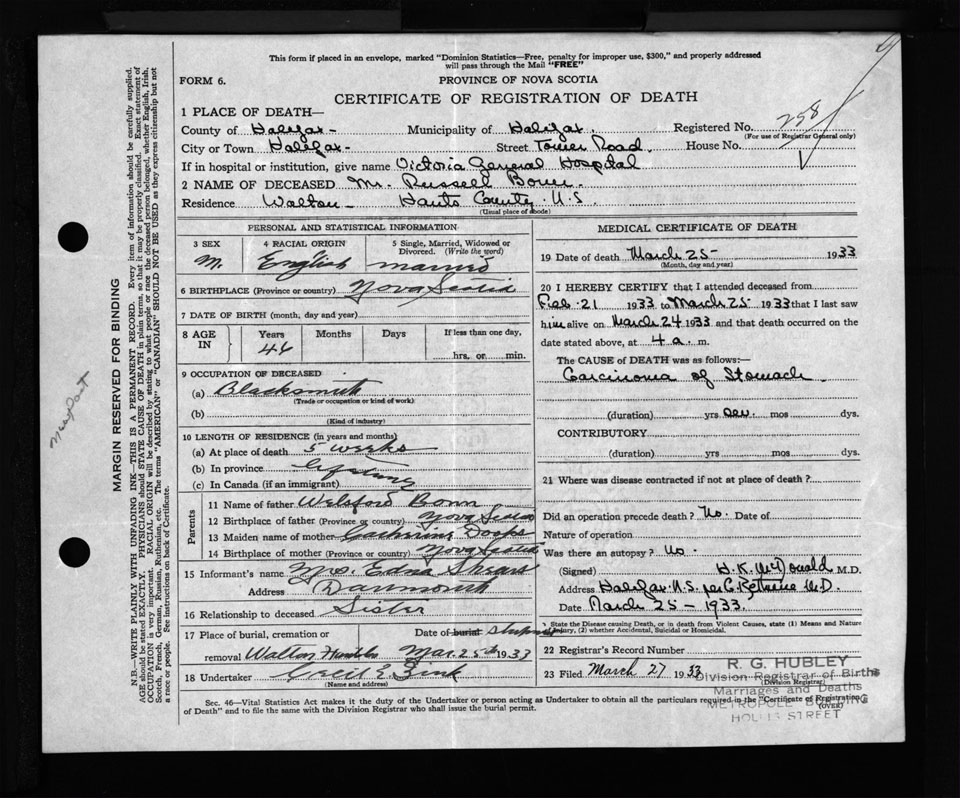 This form if placed in an envelope, marked "Dominion Statistics—Free, penalty for improper use, $300," and properly addressed
will pass through the Mail "FREE"
FORM 6.
PROVINCE OF NOVA SCOTIA
CERTIFICATE OF REGISTRATION OF DEATH
1 PLACE OF DEATH—
County of Halifax - Municipality of Halifax. Registered No. 258
(For use of Registrar General only)
City or Town Halifax - Street Tower Road. House No.
If in hospital or institution, give name Victoria General Hospital
2 NAME OF DECEASED Mr. Russell
Residence Walton - Hants County. N.S.
(Usual place of abode)
PERSONAL AND STATISTICAL INFORMATION
3 SEX 4 RACIAL ORIGIN 5 Single, Married, Widowed or Divorced. (Write the word)
M. English married
6 BIRTHPLACE (Province or country) Nova Scotia
7 DATE OF BIRTH (month, day and year)
8 AGE IN Years Months Days If less than one day,
46 hrs. or min.
9 OCCUPATION OF DECEASED
(a) Blacksmith
(Trade or occupation or kind of work)
(b)
(Kind of industry)
10 LENGTH OF RESIDENCE (in years and months)
(a) At place of death 5 weeks
(b) In province Lifetime
(c) In Canada (if an immigrant)
Parents
11 Name of father Welsford
12 Birthplace of father (Province or country) Nova Scotia
13 Maiden name of mother Catherine
14 Birthplace of mother (Province or country) Nova Scotia
15 Informant's name Mrs. Edna
Address Dartmouth
16 Relationship to deceased Sister
17 Place of burial, cremation or Date of burial
removal Walton Hants Co Mar. 25th 1933
18 Undertaker
(Name and address)
MEDICAL CERTIFICATE OF DEATH
19 Date of death March 25 - 1933
(Month, day and year)
20 I HEREBY CERTIFY that I attended deceased from
Feb. 21 1933 to March 25 - 1933 that I last saw
him alive on March 24 1933 and that death occurred on the
date stated above, at 4 a. m.
The CAUSE of DEATH was as follows:—
Carcinoma of Stomach.
(duration) yrs mos dys.
CONTRIBUTORY
(duration) yrs mos dys.
21 Where was disease contracted if not at place of death?
Did an operation precede death? No. Date of
Nature of operation
Was there an autopsy? No.
(Signed) H. K. McDonald M.D.
Address Halifax. N.S. per M.D.
Date March 25 - 1933.
State the Disease causing Death, or in death from Violent Causes, state (1) Means and Nature
of Injury, (2) whether Accidental, Suicidal or Homicidal.
22 Registrar's Record Number
23 Filed March 27 1933
(Division Registrar)
R. G. HUBLEY
Division Registrar of Births
Marriages and Deaths
METROPOLE BUILDING
HOLLIS STREET
Sec. 46—Vital Statistics Act makes it the duty of the Undertaker or person acting as Undertaker to obtain all the particulars required in the "Certificate of Registration
of Death" and to file the same with the Division Registrar who shall issue the burial permit. (OVER)
MARGIN RESERVED FOR BINDING
N.B.—WRITE PLAINLY WITH UNFADING INK—THIS IS A PERMANENT RECORD. Every item of information should be carefully supplied.
AGE should be stated EXACTLY. PHYSICIANS should STATE CAUSE OF DEATH in plain terms, so that it may be properly classified. Exact statement of
OCCUPATION is very important. RACIAL ORIGIN will be described by stating to what people or race the deceased person belonged, whether English, Irish,
Scotch, French, German, Russian, Ruthenian, etc. The terms "AMERICAN" or "CANADIAN" SHOULD NOT BE USED as they express citizenship but not
a race or people. See instructions on back of Certificate.